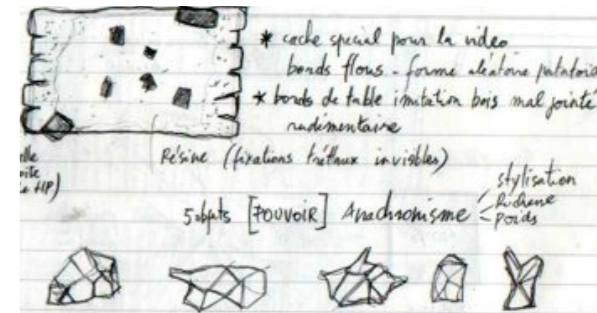 * cache special pour la video
bords flous - forme aléatoire patatoïd
* bords de table imitation bois mal jointé
rudimentaire
Résine (fixations trétaux invisibles)
HP)
stylisation
5 objets [POUVOIR] Anachronisme
poids